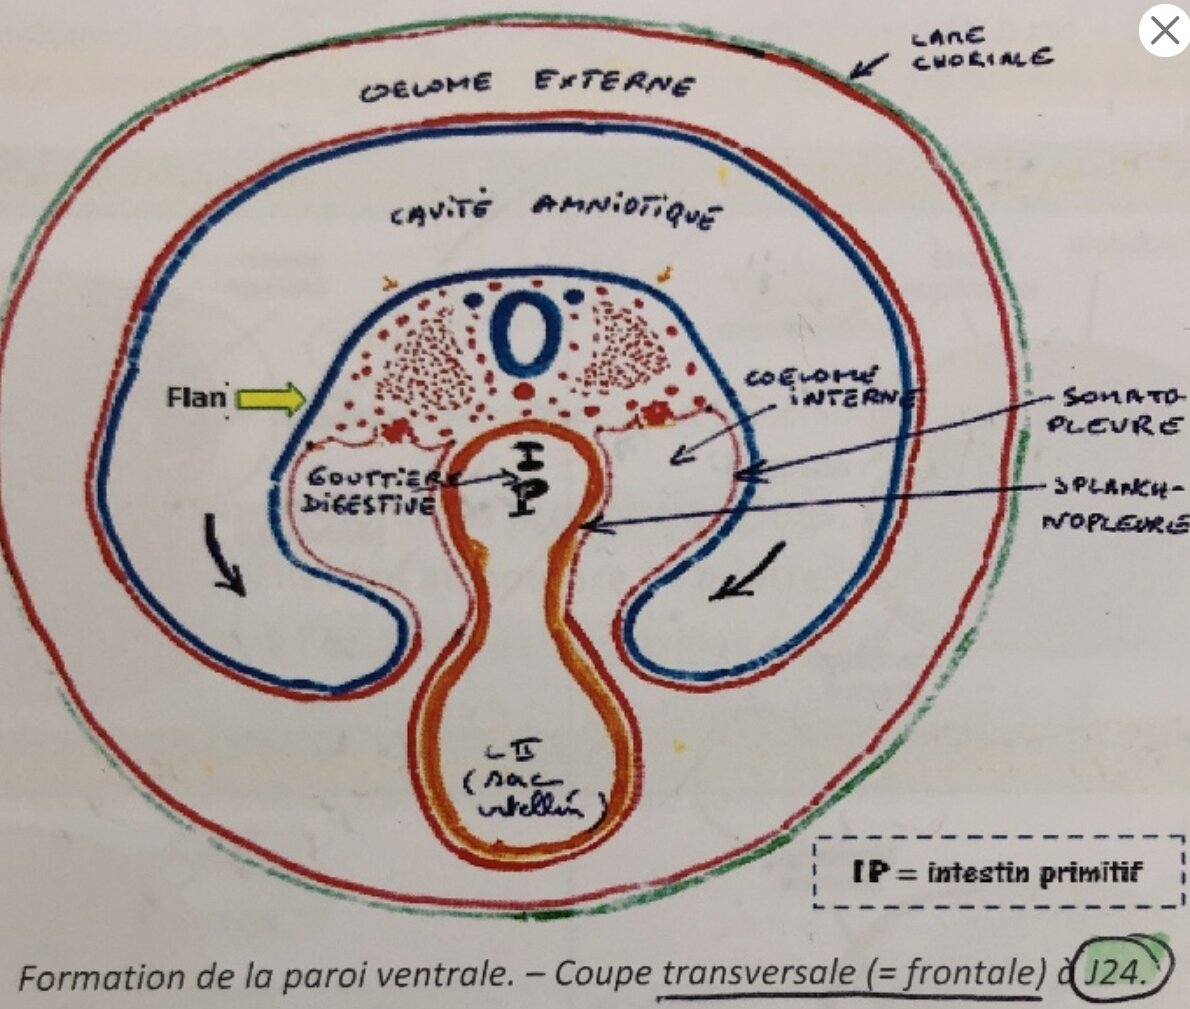 LAME
CHORIALE
COELOME EXTERNE
CAVITÉ AMNIOTIQUE
Flan
COELOME
INTERNE
SOMATO-
PLEURE
GOUTTIERE
DIGESTIVE
I
P
SPLANCH-
NOPLEURE
LII
(sac
vitellin)
IP = intestin primitif
Formation de la paroi ventrale. – Coupe transversale (= frontale) à J24.